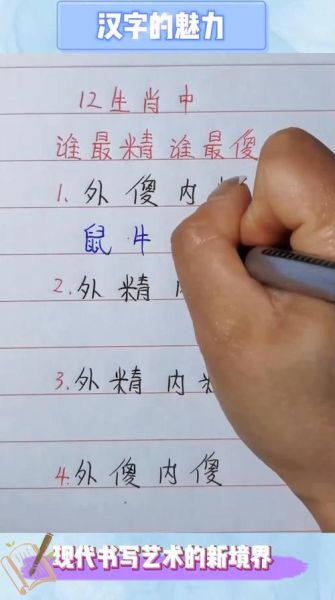 汉字的魅力
12生肖中
谁最精谁最傻
1.外傻内
鼠牛
2.外精
3.外精内
4.外傻内傻
现代书写艺术的新境界